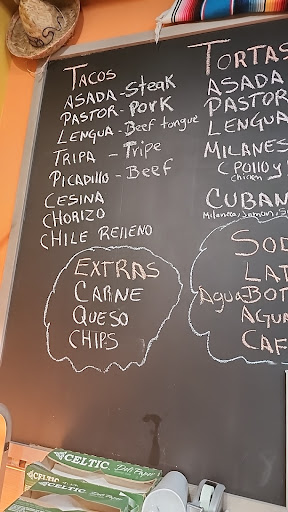 TACOS
ASADA-Steak
PASTOR-Pork
LENGUA-Beef tongue
TRIPA - Tripe
PICADILLO - Beef
CESINA
CHORIZO
CHILE RELLENO
EXTRAS
CARNE
QUESO
CHIPS
TORTAS
ASADA
PASTOR
LENGUA
MILANES
C POLLO Y
chicken
CUBAN
Milanesa,
SOD
LAT
Agua-BOT
AGUA
CAF
CELTIC Deli Paper
CELTIC
CELTIC